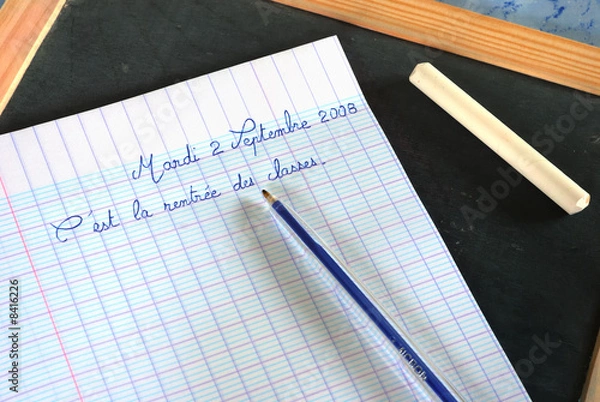 Mardi 2 Septembre 2008
C'est la rentrée des classes.
Adobe Stock | #8416226